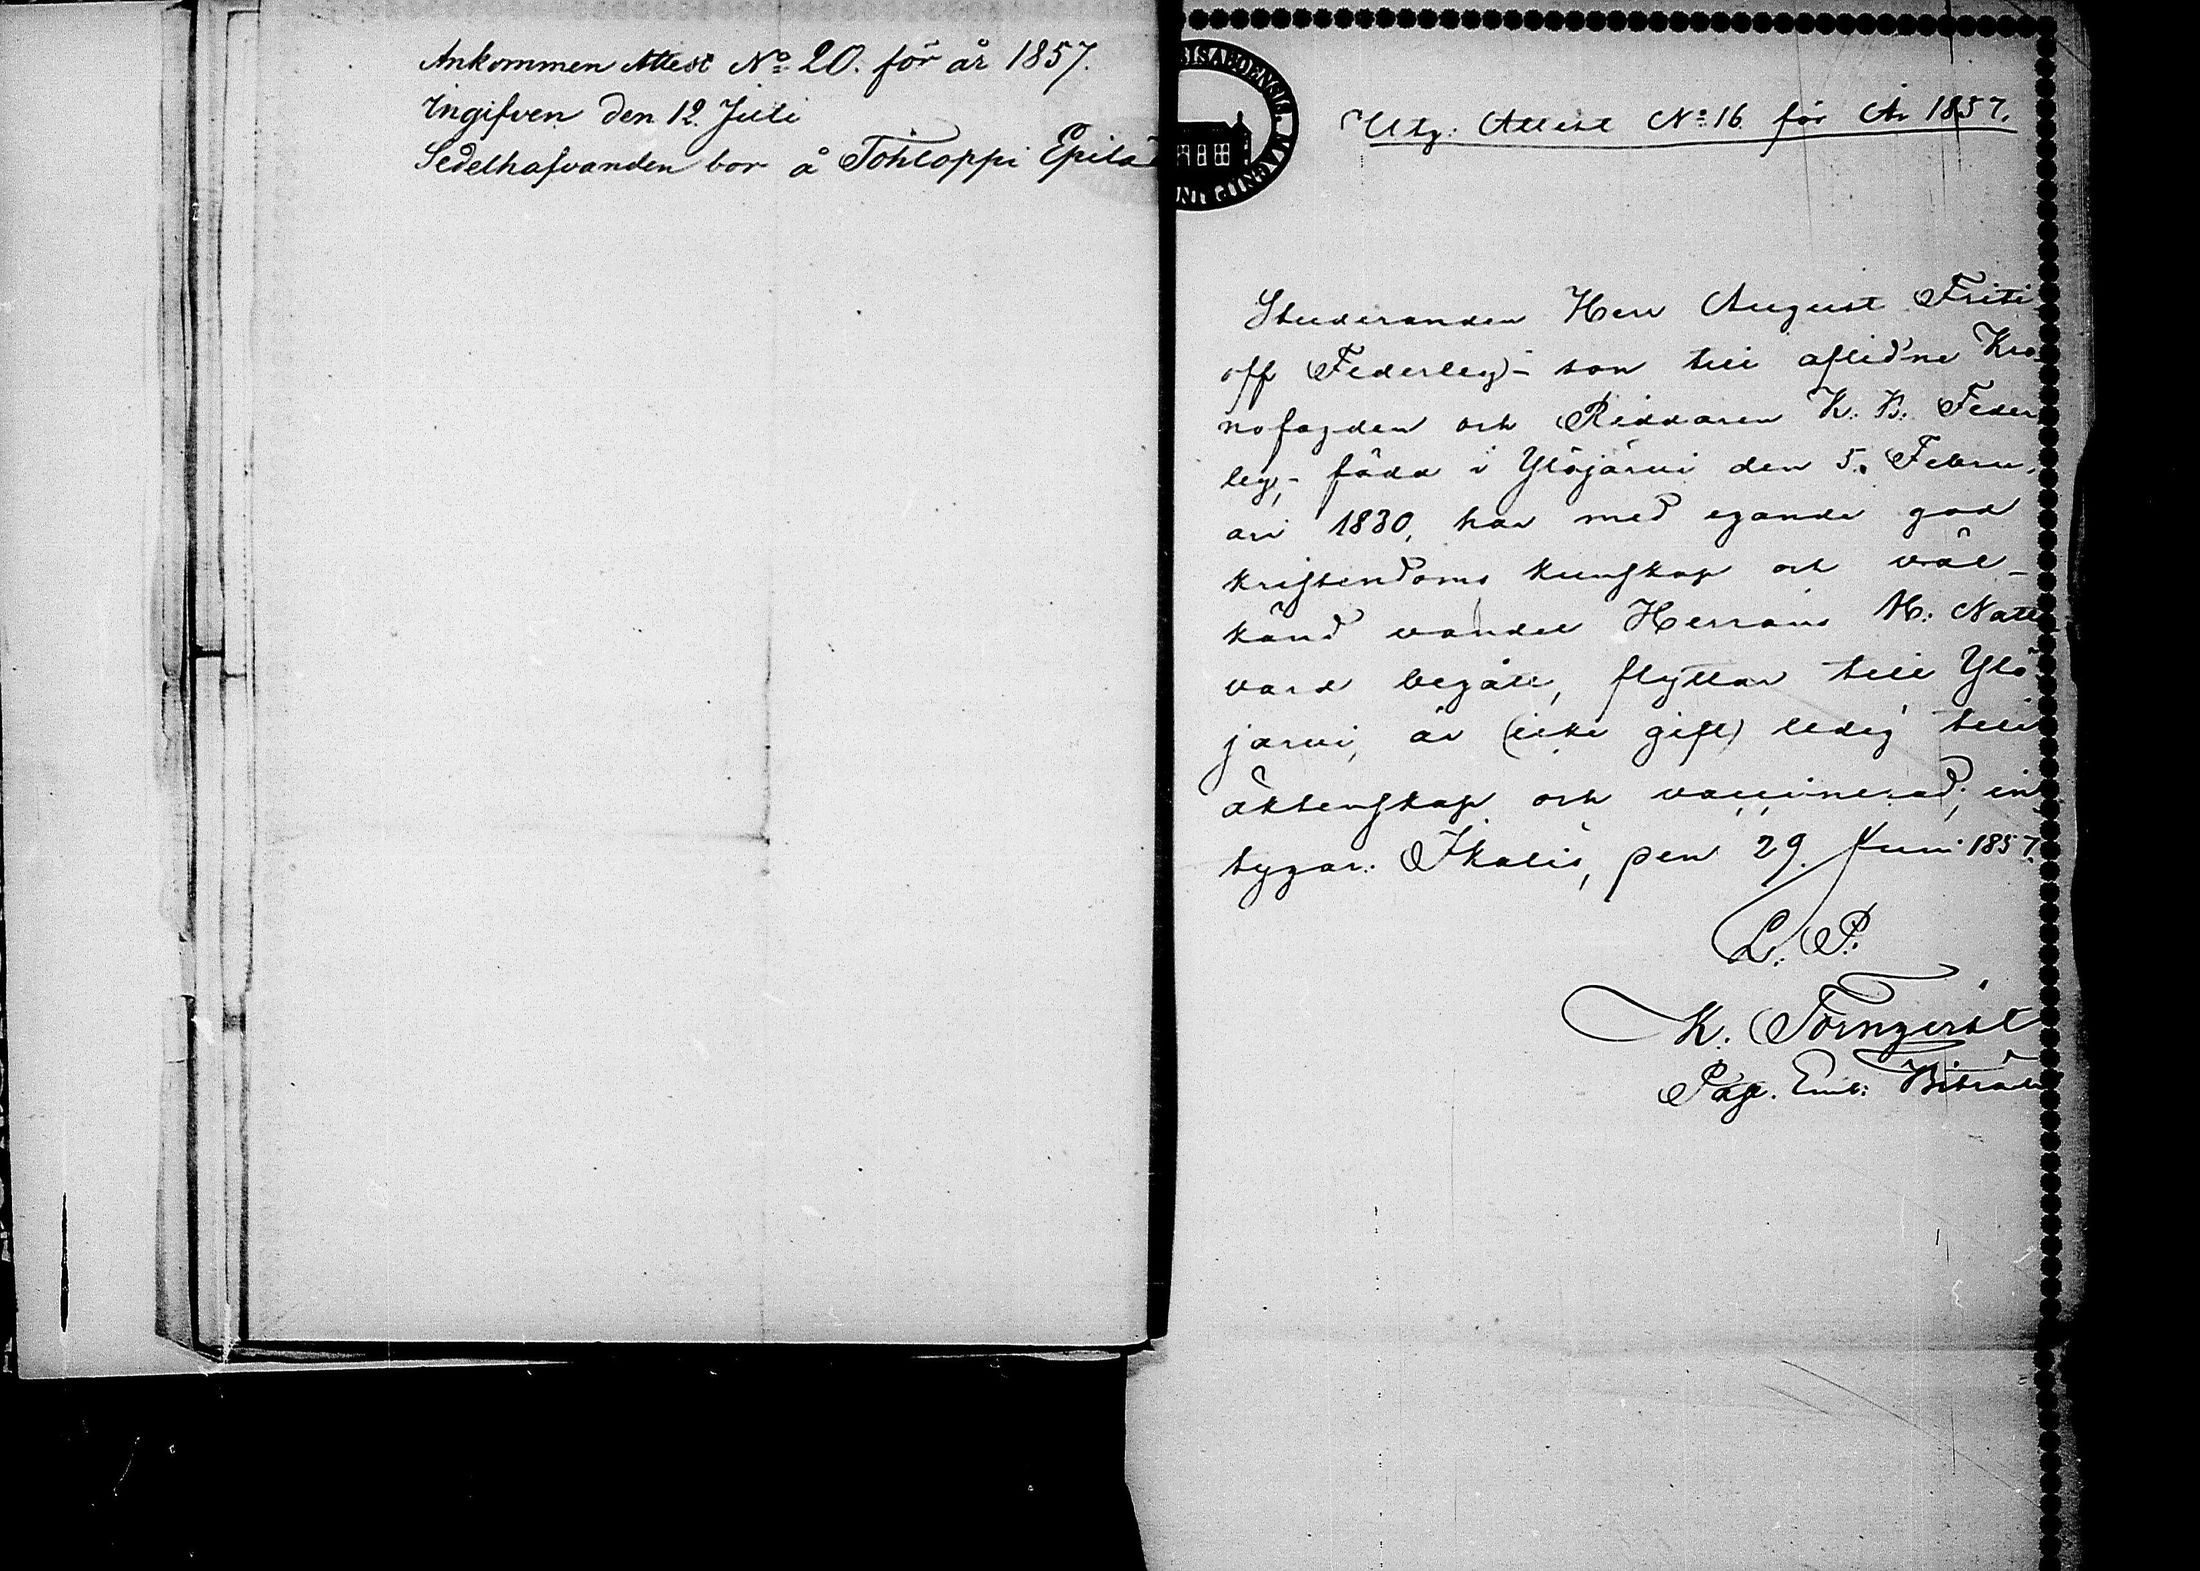 Ankommen Attest No 20. för år 1857.
Ingifven den 12. Juli
Sedelhafvanden bor å Tohloppi Epilä
Utg: Attest No 16 för År 1857.
Studeranden Herr August Friti
off Federley - son till aflidne Kro
nofogden och Riddaren K. B. Feder
ley, - född i Ylöjärvi den 5. Febru,
ari 1830, har med egande god
kristendoms kunskap och väl-
känd vandel Herrans H: Natt
vard begått, flyttar till Ylö
järvi, är (icke gift) ledig till
äktenskap och vaccinerad; in
tygar: Ikalis, den 29. Juni 1857.
L. P.
K. Törnqvist
Past. Emb: Biträde